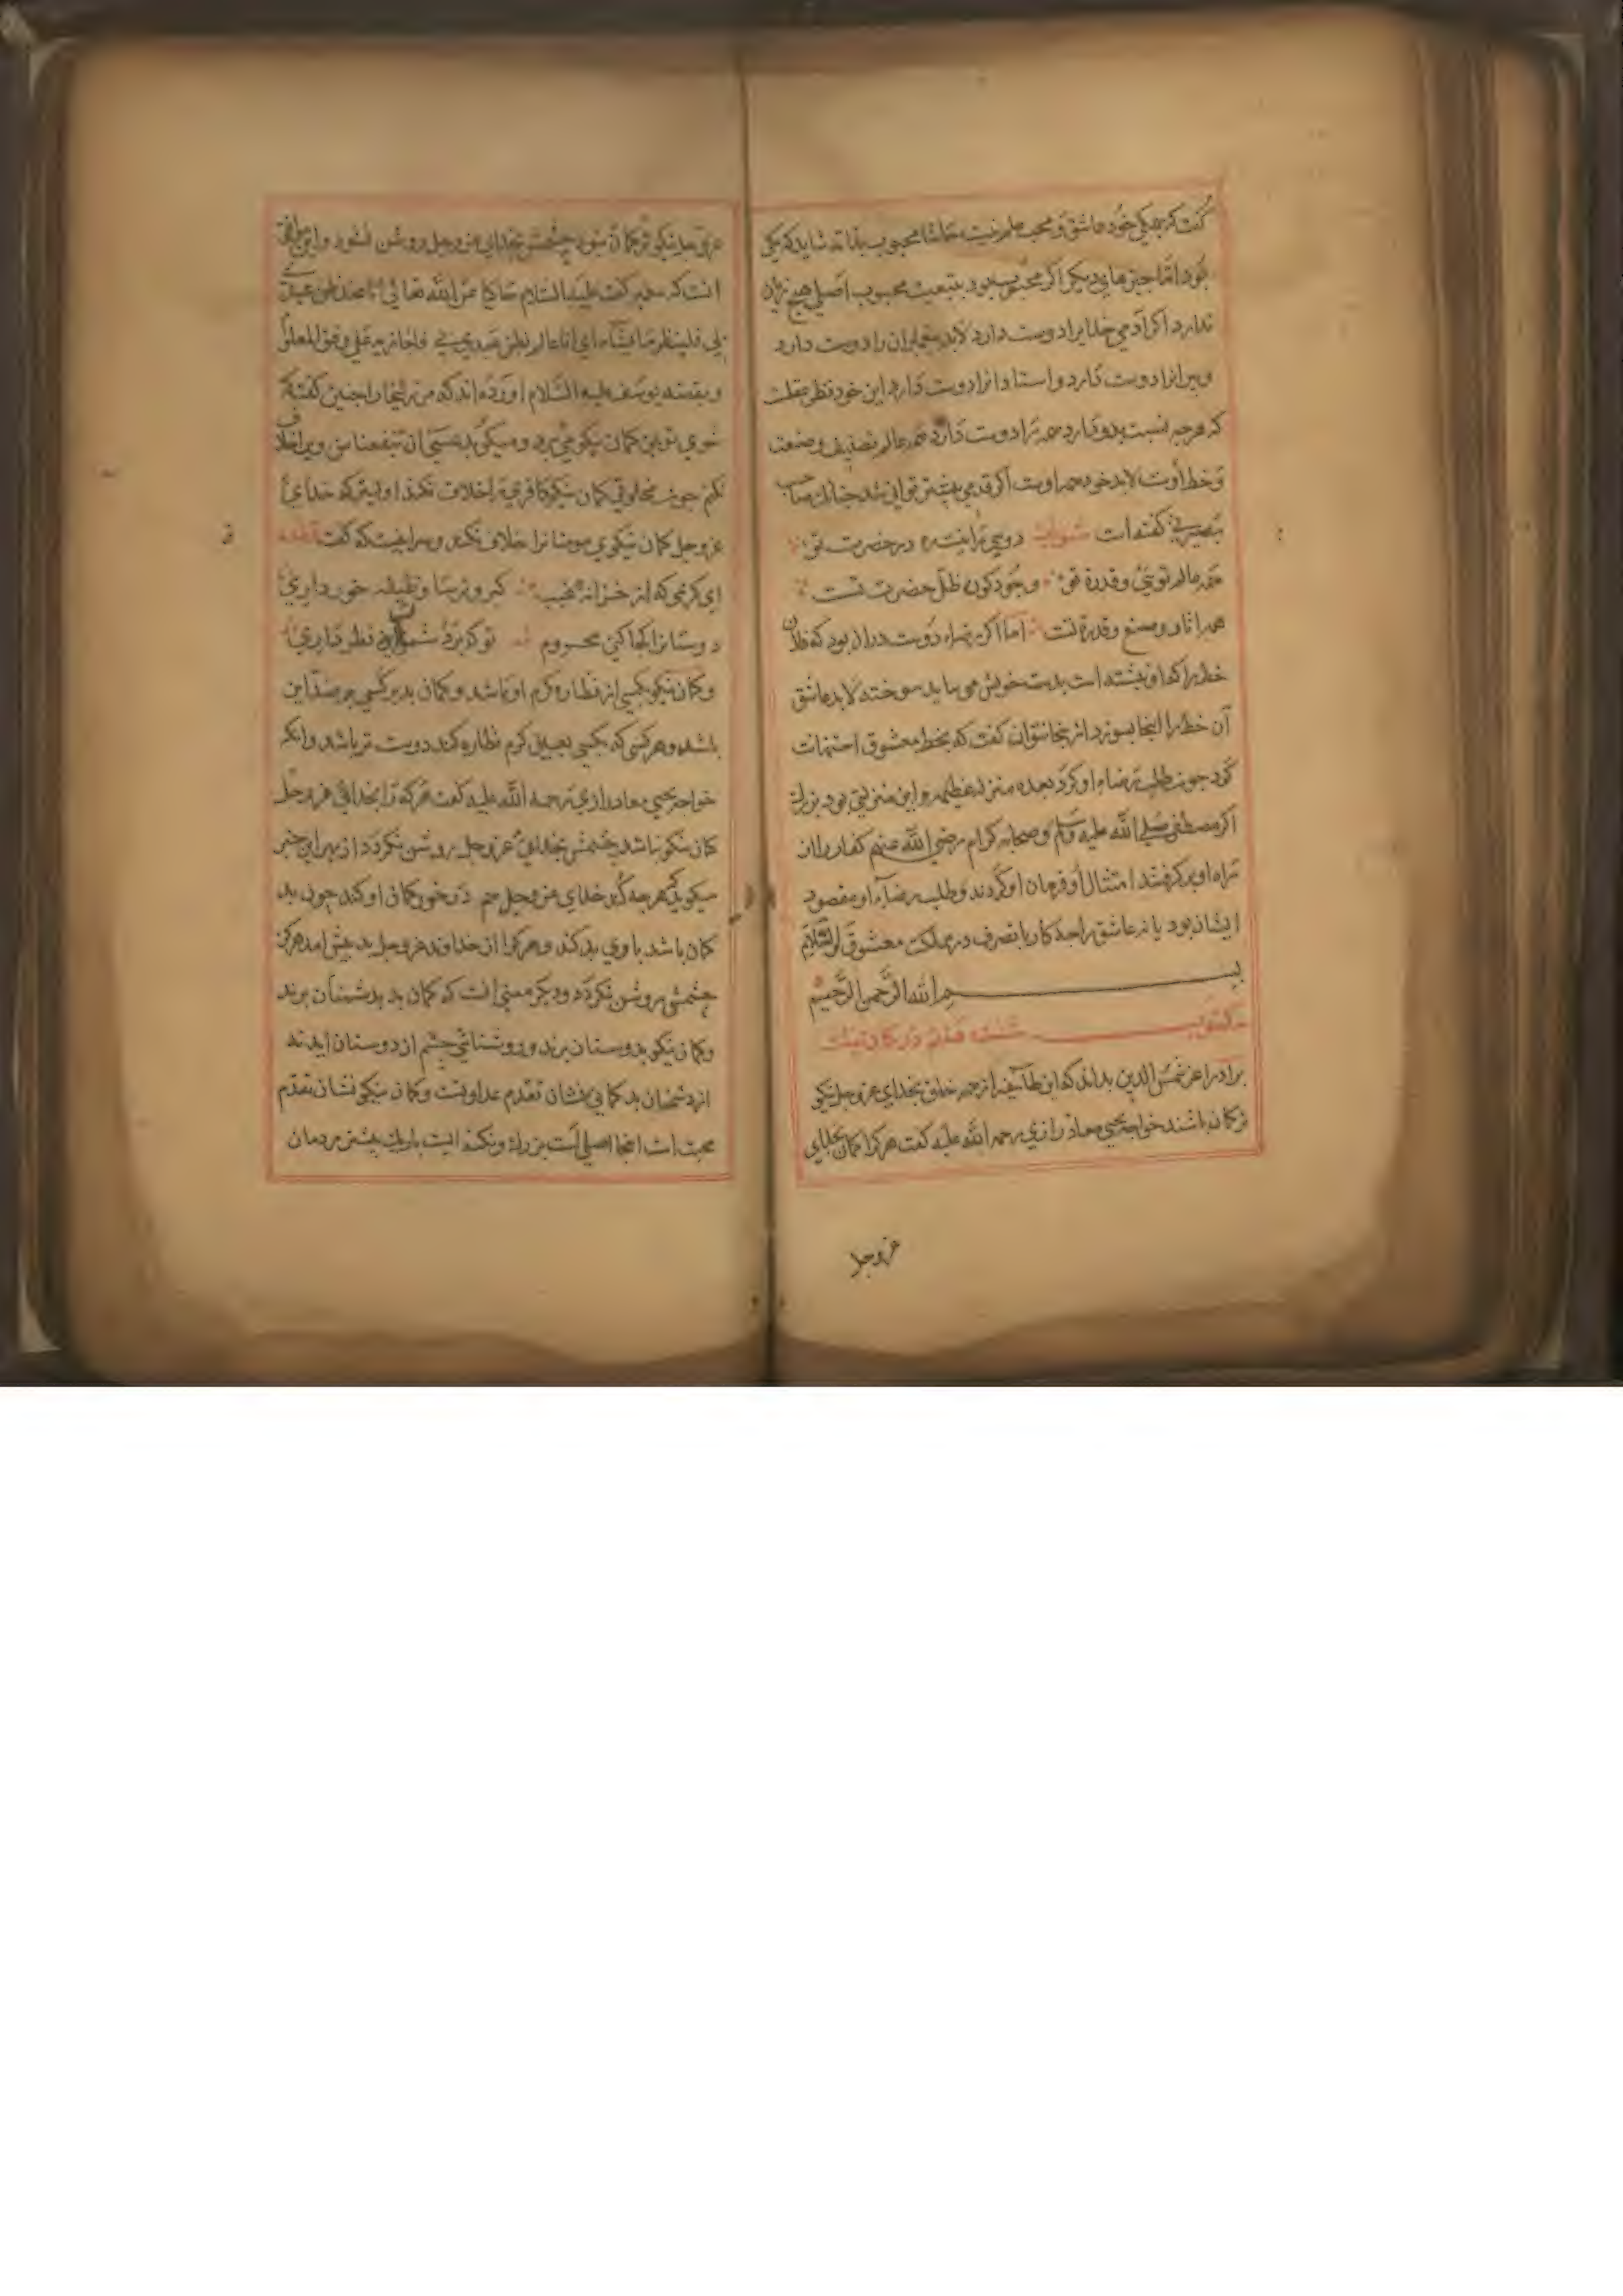 گفت که بیکی خود عاشق و محب
بود اما چیزهای دیگر اگر محبوب بود بتبعیت محبوب اصلی هیچ زیان
ندارد اگر آدمی خدایرا دوست دارد لابد پیغمبران را دوست دارد
و پیرانرا دوست دارد و استادانرا دوست دارد این خود نظر عقلست
که هرچه نسبت بدو دارد همه را دوست دارد همه عالم تصنیف و صنعت
و خط اوست لابد خود همه اوست اگر قدمی پیشتر توانی شد چنانک صاحب
گفته است در حضرت تو
همه عالم توئی و قدرة تو وجود کون ظل حضرت تست
همه اثار و صنع و قدرة تست اما اگر رضاء دوست دران بود که فلان
خط را که او نبشته است بدست خویش می باید سوخته لابد عاشق
آن خط را اینجا بسوزد ازینجا نتوان گفت که بخط معشوق استهانت
کرد چون طلب رضاء او کرد بعده منزلة عظیمه و این منزلتی بود بزرك
اکر مصطفی صلی الله علیه وسلم و صحابه کرام رضی الله عنهم کفار را از
راه او بر کرفتند امتثال او فرمان او کردند و طلب رضاء او مقصود
ایشان بود یا نه عاشق را چه کار با تصرف در مملکت معشوق والسلام
بسم الله الرحمن الرحیم
مکتوب در کمان نیک
برادرم اعز شمس الدین بداند که این طائفه از جمه خلق بخدای عز و جل نیکو
تر کمان باشند خواجه یحیی معاذ رازی رحمه الله علیه کفت هر کرا کمان بخدای
عز و جل
عز و جل نیکوتر کمان نبود چشمش بخدای عز و جل روشن نشود و این موافق
انست که پیغمبر کفت علیه السلام حاکیا عن الله تعالی انا عند ظن عبدی
بی فلیظن ما یشاء ای انا عالم بظن عبدی بی
و بقصه یوسف علیه السلام آورده اند که من زلیخا را چنین کفته
خوی تو بمن کمان نیکو می برد و میکوید عسی ان ینفعنا من ویرا خلاف
نکنم چون مخلوقی کمان نیکو کافری را خلاف نکند اولیتر که خدای
عز و جل کمان نیکوی مومنانرا خلاف نکند و سر اینست که کفت قطعه
ای کریمی که از خزانه غیب کبر و ترسا وظیفه خور داری
دوستانرا کجا کنی محروم تو که با دشمنان این نظر داری
و کمان نیکو بکسی از نظاره کرم او باشد و کمان بد بر کسی بر ضد این
باشد و هر کسی که بکسی بعین کرم نظاره کند دوست تر باشد و آنکه
خواجه یحیی معاذ رازی رحمه الله علیه کفت هر که را بخدای عز و جل
کمان نیکو نباشد چشمش بخدای عز و جل روشن نکردد از بهر این خبر
میکوید که هرچه کند خدای عز و جل هم در خور کمان او کند چون بد
کمان باشد با وی بد کند و هر کرا از خداوند عز و جل بد پیش امد هرکز
چشمش روشن نکردد و دیکر معنی انست که کمان بد بدشمنان برند
و کمان نیکو بدوستان برند و روشنائی چشم از دوستان آید نه
از دشمنان بد کمانی نشان تقدم عداوتست و کمان نیکو نشان تقدم
محبت است اینجا اصلی است بزرك و نکته ایست باریك بیشتر مردمان